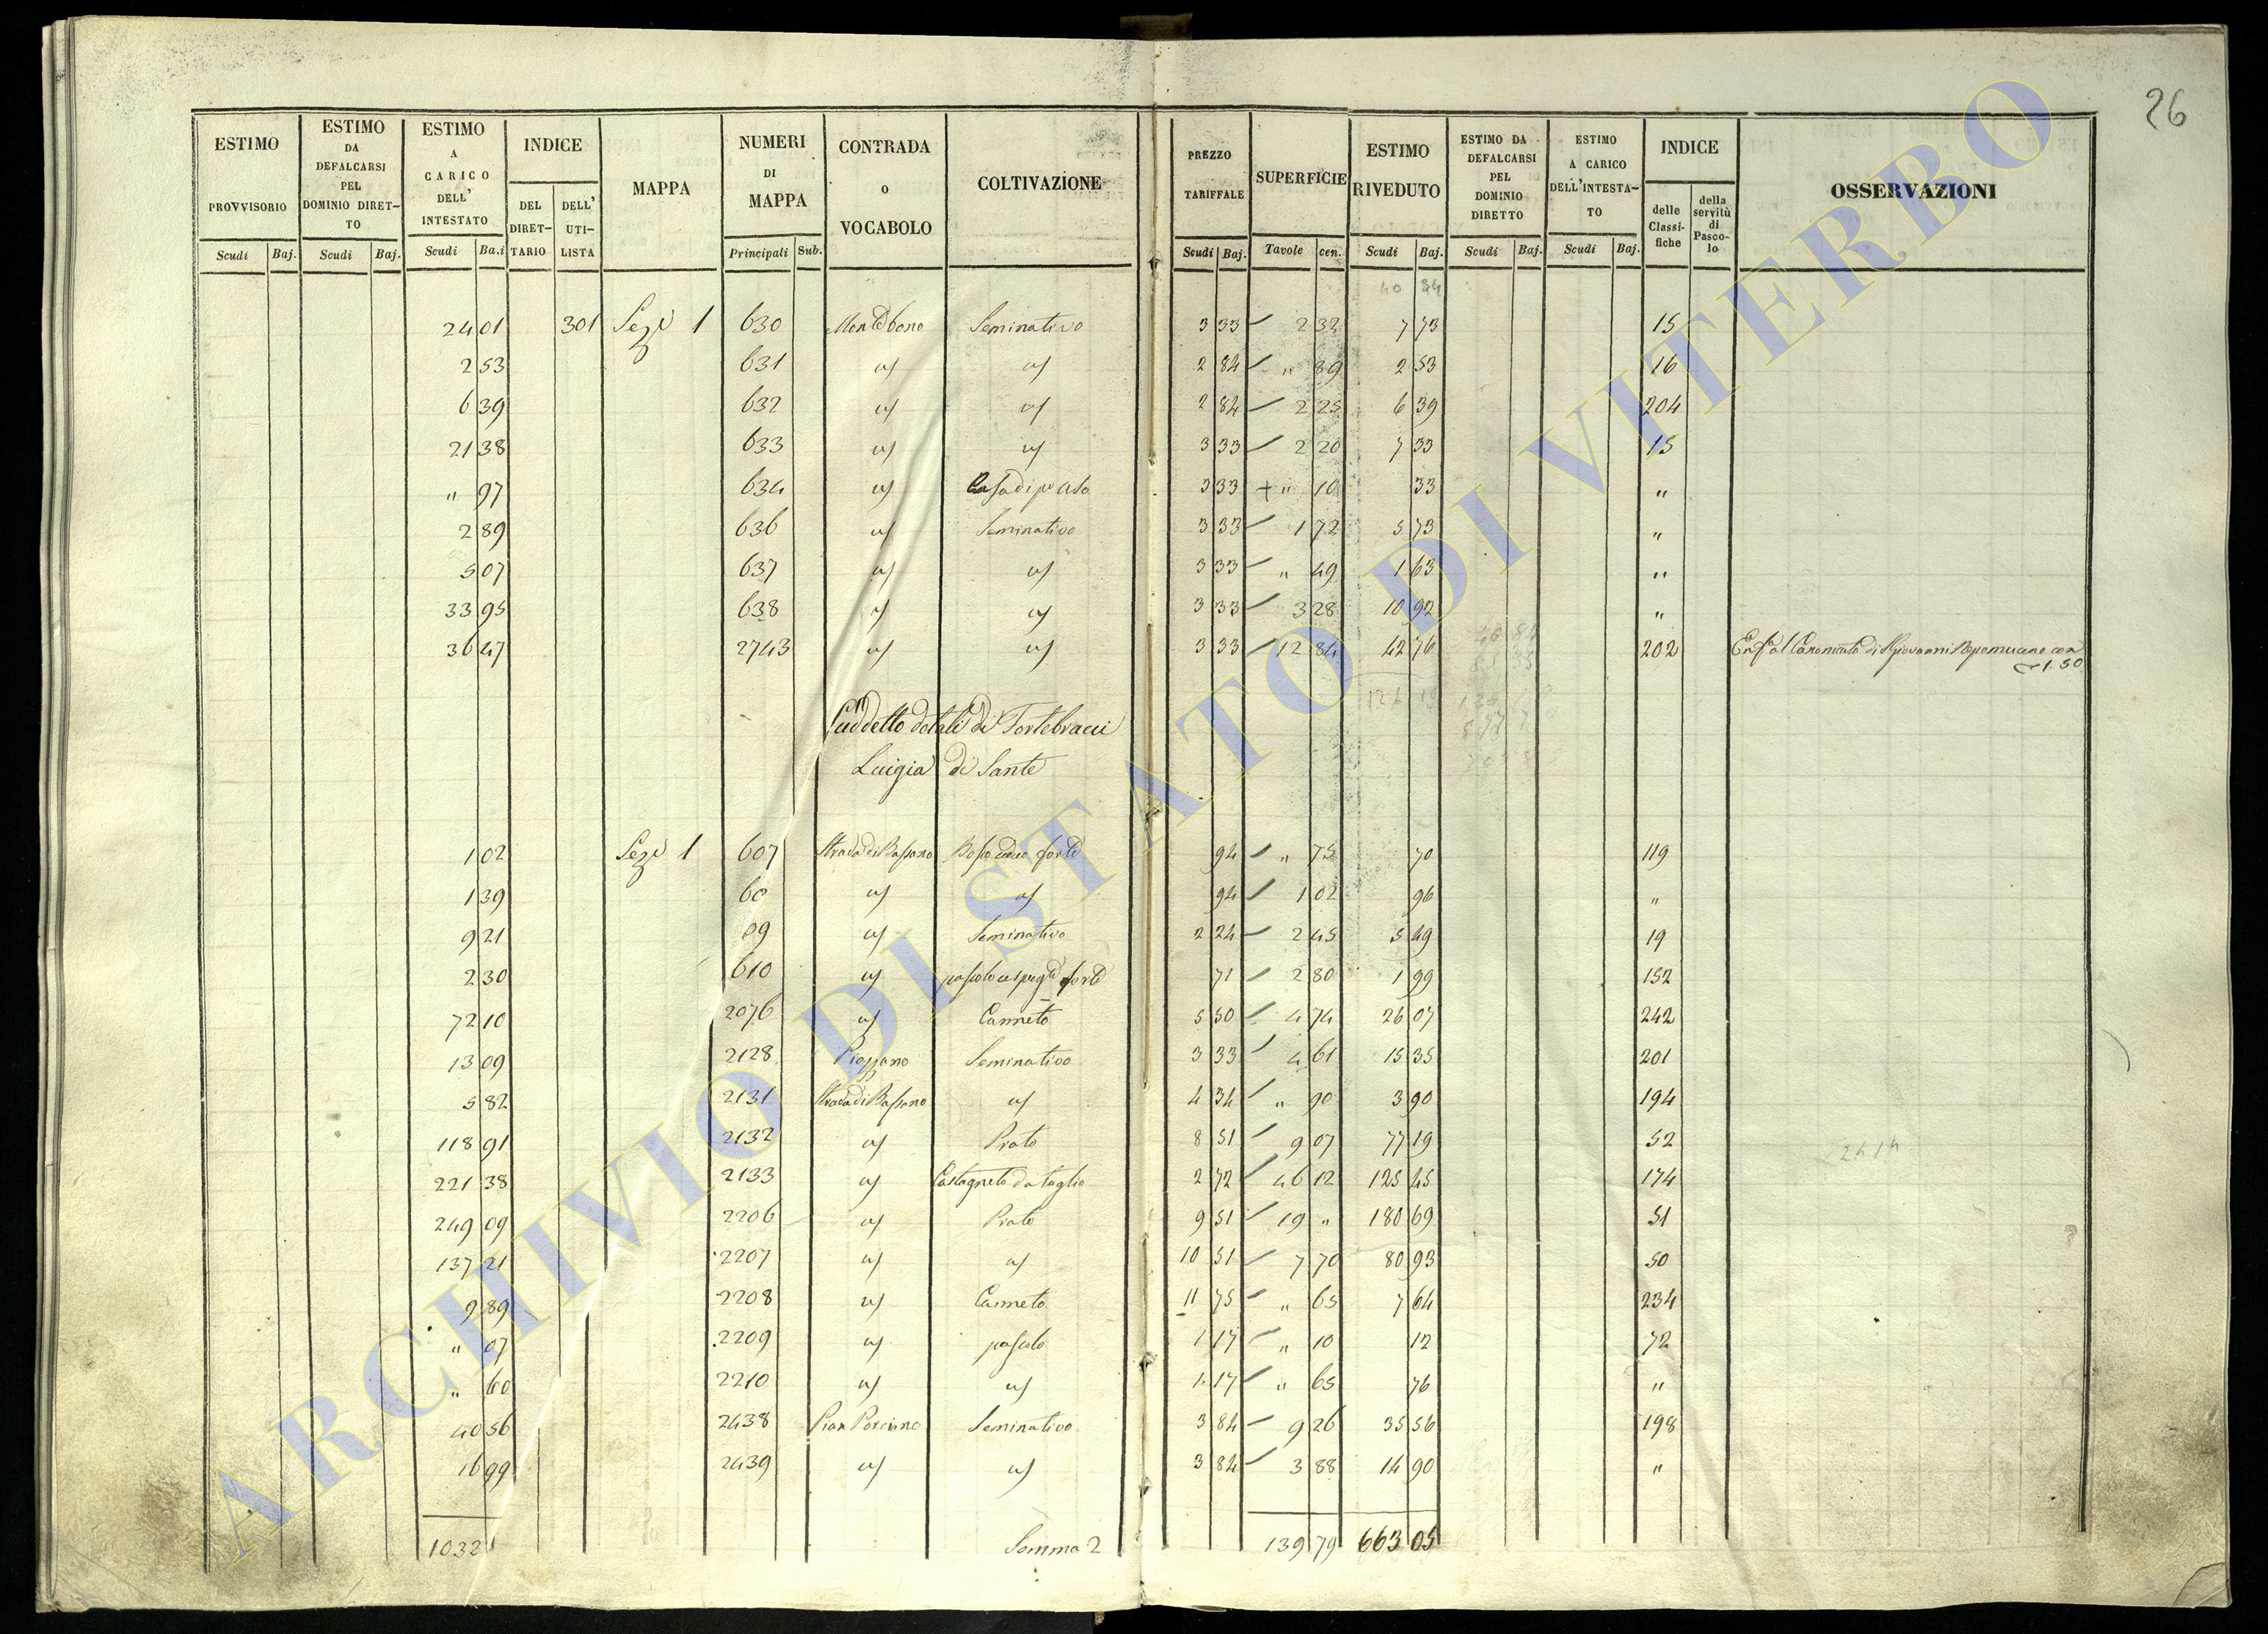 26
ESTIMO PROVVISORIO Scudi Baj.
ESTIMO DA DEFALCARSI PEL DOMINIO DIRET-TO Scudi Baj.
ESTIMO A CARICO DELL' INTESTATO Scudi Ba.i
INDICE DEL DIRET-TARIO DELL' UTI-LISTA
MAPPA
NUMERI DI MAPPA Principali Sub.
CONTRADA O VOCABOLO
COLTIVAZIONE
PREZZO TARIFFALE Scudi Baj.
SUPERFICIE Tavole cen.
ESTIMO RIVEDUTO Scudi Baj.
ESTIMO DA DEFALCARSI PEL DOMINIO DIRETTO Scudi Baj.
ESTIMO A CARICO DELL'INTESTA-TO Scudi Baj.
INDICE delle Classi-fiche della servitù di Pasco-lo
OSSERVAZIONI
24 01 301 Sez. 1 630 Montebono Seminativo 3 33 2 32 7 73 15
2 53 631 " " 2 84 " 89 2 53 16
6 39 632 " " 2 84 2 25 6 39 204
21 38 633 " " 3 33 2 20 7 33 15
" 97 634 " 3 33 + " 10 33 "
2 89 636 " Seminativo 3 33 1 72 5 73 "
5 07 637 " " 3 33 " 49 1 63 "
33 95 638 " " 3 33 3 28 10 92 "
36 47 2743 " " 3 33 12 84 42 76 202 Canonicato di S. Giovanni Nepomuceno con
1.50
Suddetto dotali di Fortebracci
Luigia di Sante
1 02 Sez. 1 607 Strada di Bassano Bosco ceduo forte 94 " 75 70 119
1 39 " " 94 1 02 96 "
9 21 09 " Seminativo 2 24 2 45 5 49 19
2 30 610 " pascolo cespugli forte 71 2 80 1 99 152
72 10 2076 " Canneto 5 50 4 74 26 07 242
13 09 2128 Seminativo 3 33 4 61 15 35 201
5 82 2131 Strada di Bassano " 4 34 " 90 3 90 194
118 91 2132 " Prato 8 51 9 07 77 19 52
221 38 2133 " Castagneto da taglio 2 72 46 12 125 45 174
249 09 2206 " Prato 9 51 19 " 180 69 51
137 21 2207 " " 10 51 7 70 80 93 50
9 89 2208 " Canneto 11 75 " 65 7 64 234
" 07 2209 " pascolo 1 17 " 10 12 72
" 60 2210 " " 1 17 " 65 76 "
40 56 2438 Pian Porciano Seminativo 3 84 9 26 35 56 198
16 99 2439 " " 3 84 3 88 14 90 "
1032 Somma 2 139 79 663 05
ARCHIVIO DI STATO DI VITERBO